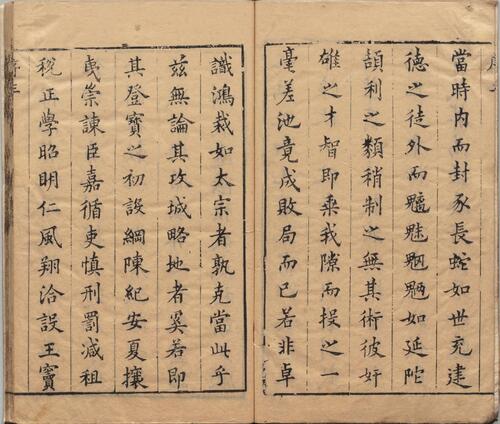 當時内而封豕長蛇如世充建
德之徒外而魑魅魍魎如延陀
頡利之類稍制之無其術彼奸
雄之才智即乘我隙而投之一
毫差池竟成敗局而已若非卓
識鴻裁如太宗者孰克當此乎
茲無論其攻城略地者奚若即
其登寶之初設綱陳紀安夏攘
夷崇諫臣嘉循吏慎刑罰減租
稅正學昭明仁風翔洽設王竇
序三